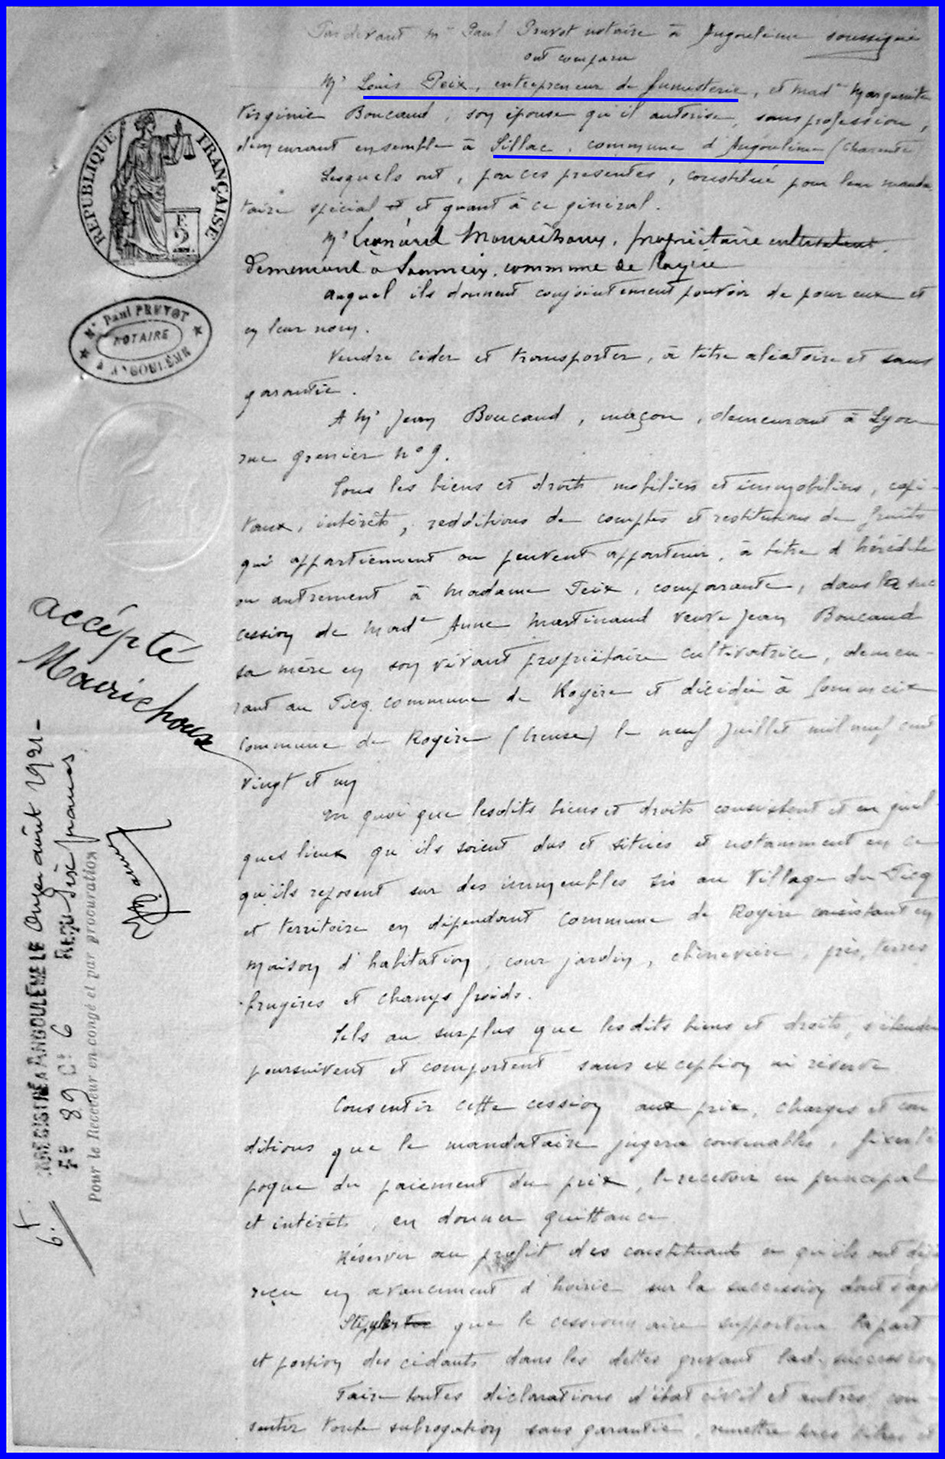 Pardevant Me Paul Prevot notaire à Angoulême soussigné
ont comparu
Mr Louis Peix, entrepreneur de fumisterie, et made Marguerite
Virginie Boucaud, son épouse qu'il autorise, sans profession,
demeurant ensemble à Sillac, commune d'Angoulême (Charente)
Lesquels ont, par ces présentes, constitué pour leur manda
taire spécial et et quant à ce général.
Mr Léonard Mourichoux, propriétaire cultivateur,
demeurant à commune de Royère
auquel ils donnent conjointement pouvoir de pour eux et
en leur nom.
Vendre céder et transporter, à titre aléatoire et sans
garantie.
A Mr Jean Boucaud, maçon, demeurant à Lyon
rue grenier no 9.
Tous les biens et droits mobiliers et immobiliers, capi-
taux, intérêts, redditions de comptes et restitutions de fruits
qui appartiennent ou peuvent appartenir, à titre d'hérédité
ou autrement à Madame Peix, comparante, dans la suc
cession de Made Anne Martinaud veuve Jean Boucaud
sa mère en son vivant propriétaire cultivatrice, demeu-
rant au Picq commune de Royère et décédée à
commune de Royère (Creuse) le neuf juillet mil neuf cent
vingt et un
En quoi que lesdits biens et droits consistent et en quel
ques lieux qu'ils soient dus et situés et notamment en ce
qu'ils reposent sur des immeubles sis au Village du Picq
et territoire en dépendant commune de Royère consistant en
maison d'habitation, cour jardin, chènevière, prés, terres
bruyères et champs froids.
Tels au surplus que lesdits biens et droits, s'étendent
poursuivent et comportent sans exception ni réserve
Consentir cette cession aux prix, charges et con
ditions que le mandataire jugera convenables, fixer l'é
poque du paiement du prix, le recevoir en principal
et intérêts, en donner quittance
Réserver au profit des constituants ce qu'ils ont déjà
reçu en avancement d'hoirie sur la succession dont s'agit
Stipuler que le cessionnaire supportera la part
et portion des cédants dans les dettes grevant lad. succession
Faire toutes déclarations d'état civil et autres, con
sentir toute subrogation sans garantie, remettre tous titres et
RÉPUBLIQUE FRANÇAISE
2F
Me Paul PREVOT
NOTAIRE
à ANGOULÊME
accepté
Mourichoux
ENREGISTRÉ A ANGOULÊME LE Onze août 1921-
Fo 89 Ce 6 REÇU Six francs
Pour le Receveur en congé et par procuration
6 f